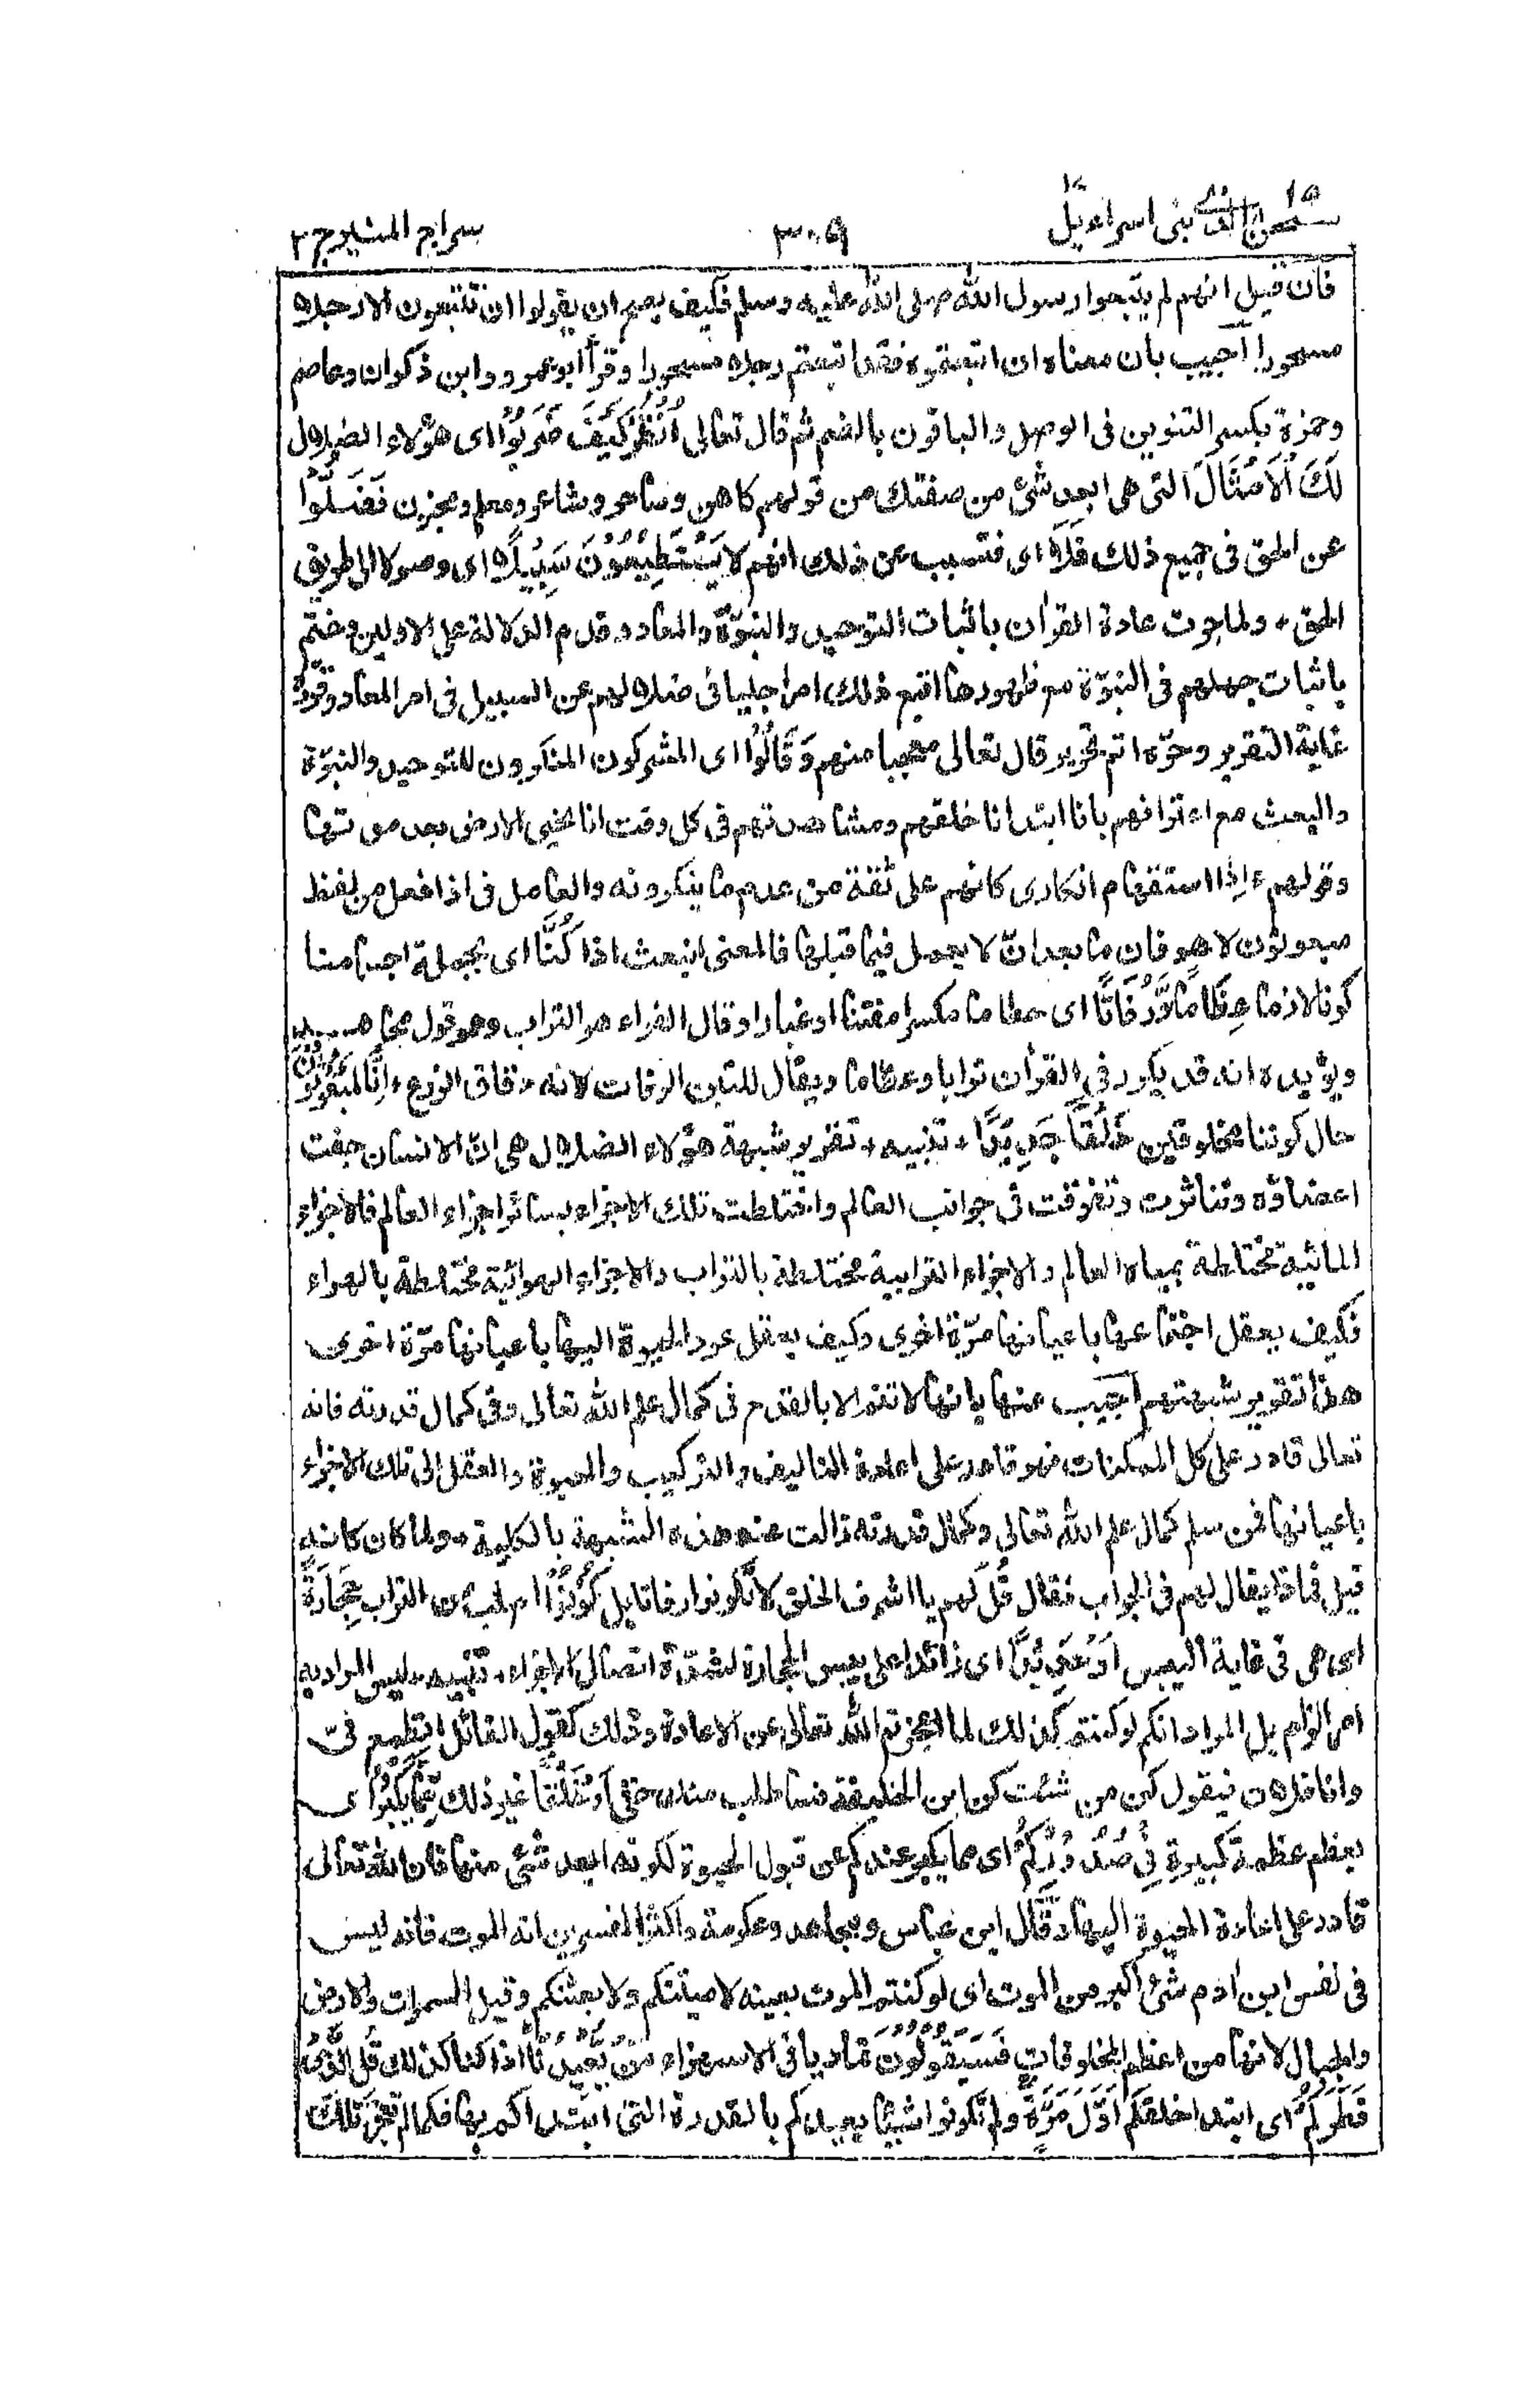 سبحن الذى ١٥ بنى اسراءيل ١٧
٣٠٩
سراج المنير ج ٢
فان قيل انهم لم يتبعوا رسول الله صلى الله عليه وسلم فكيف يصح ان يقولوا ان تتبعون الا رجلا
مسحورا اجيب بان معناه ان اتبعتموه فقد اتبعتم رجلا مسحورا وقرأ ابو عمرو وابن ذكوان وعاصم
وحمزة بكسر التنوين فى الوصل والباقون بالضم ثم قال تعالى اُنْظُرْ كَيْفَ ضَرَبُوْا اى هؤلاء الضلال
لَكَ الْاَمْثَالَ التى هى ابعد شئ من صفتك من قولهم كاهن وساحر وشاعر ومعلم ومجنون فَضَلُّوْا
عن الحق فى جميع ذلك فَلَا اى فتسبب عن ذلك انهم لا يَسْتَطِيْعُوْنَ سَبِيْلًا اى وصولا الى طريق
الحق ۰ ولما جرت عادة القرأن باثبات التوحيد والنبوّة والمعاد وقدم الدلالة على الاولين وختم
باثبات جهلهم فى النبوّة مع ظهورها اتبع ذلك امرا جليا فى ضلالهم عن السبيل فى امر المعاد وقرّره
غاية التقرير وحرّره اتم تحرير قال تعالى معجبا منهم وَقَالُوْا اى المشركون المنكرون للتوحيد والنبوّة
والبعث مع اعترافهم بانا ابتدانا خلقهم ومشاهدتهم فى كل وقت انا نحيى الارض بعد موتها
وقولهم ءَاِذَا استفهام انكارى كانهم على ثقة من عدم ما ينكرونه والعامل فى اذا فعل من لفظ
مبعوثون لا هو فان ما بعد انّ لا يعمل فيما قبلها فالمعنى انبعث اذا كُنَّا اى بجملة اجسامنا
كونا لازما عِظَامًا وَّرُفَاتًا اى حطاما مكسرا مفتتا او غبارا وقال الفراء هو التراب وهو قول مجاهد
ويؤيده انه قد يكرر فى القرأن ترابا وعظاما ويقال للتبن الرفات لانه دقاق الزرع ۰ اِنَّا لَمَبْعُوْثُوْنَ
حال كوننا مخلوقين خَلْقًا جَدِيْدًا ۰ تنبيه ۰ تقرير شبهة هؤلاء الضلال هى انّ الانسان جفت
اعضاؤه وتناثرت وتفرقت فى جوانب العالم واختلطت تلك الاجزاء بسائر اجزاء العالم فالاجزاء
المائية مختلطة بمياه العالم والاجزاء الترابية مختلطة بالتراب والاجزاء الهوائية مختلطة بالهواء
فكيف يعقل اجتماعها باعيانها مرّة اخرى وكيف يعقل عود الحيوة اليها باعيانها مرّة اخرى
هذا تقرير شبهتهم اجيب عنها بانها لا تتم الا بالقدم فى كمال علم الله تعالى وفى كمال قدرته فانه
تعالى قادر على كل الممكنات فهو قادر على اعادة التاليف والتركيب والحيوة والعقل الى تلك الاجزاء
باعيانها فمن سلم كمال علم الله تعالى وكمال قدرته زالت عنه هذه الشبهة بالكلية ۰ ولما كان كانه
قيل فماذا يقال لهم فى الجواب فقال قُلْ لهم يا اشرف الخلق لا تكونوا رفاتا بل كُوْنُوْا اصلب من التراب حِجَارَةً
اى هى فى غاية اليبس اَوْ حَدِيْدًا اى زائدا على يبس الحجارة لشدّة اتصال الاجزاء ۰ تنبيه ۰ ليس المراد به
امر الزام بل المراد انكم لو كنتم كذلك لما اعجزتم الله تعالى عن الاعادة وذلك كقول القائل اتطمع فىّ
وانا فلان فيقول كن من شئت كن ابن الخليفة فساطلب منك حقى اَوْ خَلْقًا غير ذلك مِّمَّا يَكْبُرُ اى
يعظم عظمة كبيرة فِيْ صُدُوْرِكُمْ اى مما يكبر عندكم عن قبول الحيوة لكونه ابعد شئ منها فان الله تعالى
قادر على اعادة الحيوة اليها وقال ابن عباس ومجاهد وعكرمة واكثر المفسرين انه الموت فانه ليس
فى نفس ابن أدم شئ اكبر من الموت اى لو كنتم الموت بعينه لاميتنكم ولابعثنكم وقيل السموات والارض
والجبال لانها من اعظم المخلوقات فَسَيَقُوْلُوْنَ تماديا فى الاستهزاء مَنْ يُّعِيْدُنَا اذا كنا كذلك قُلِ الَّذِيْ
فَطَرَكُمْ اى ابتدا خلقكم اَوَّلَ مَرَّةٍ ولم تكونوا شيئا يعيدكم بالقدرة التى ابتداكم بها فكما لم تعجز تلك